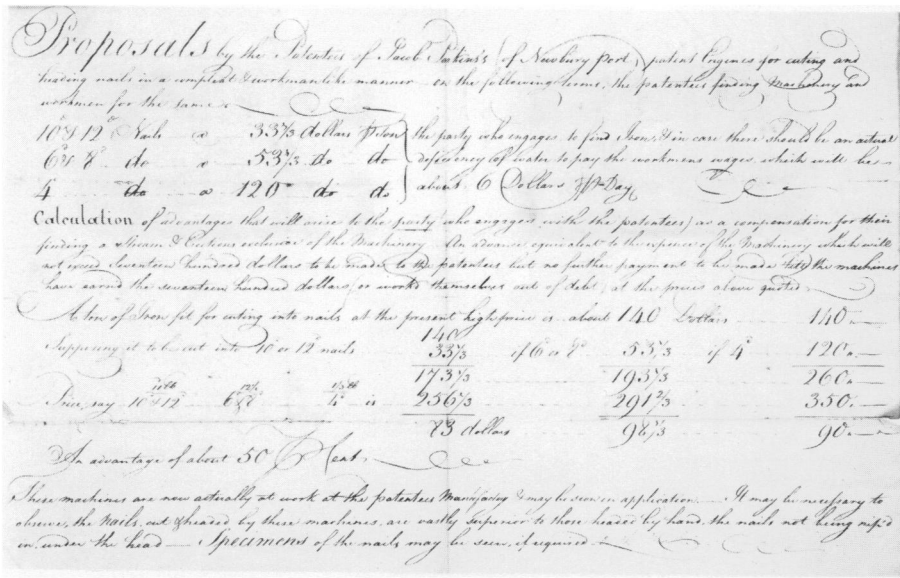 Proposals by the Patentees of Jacob Perkins's (of Newbury Port) patent Engines for cuting and
heading nails in a compleat & workmanlike manner on the following terms, the patentees finding Machinery and
workmen for the same
10d & 12d Nails a 33⅓ dollars Pr Ton the party who engages to find Iron, & in case there should be an actual
6d & 8d do a 53⅓ do do deficiency of water to pay the workmens wages which will be
4 do a 120 do do about 6 Dollars Pr Day
Calculation of advantages that will arise to the party who engages with the patentees, as a compensation for their
finding a Stream & Erections exclusive of the Machinery. An advance equivalent to the expence of the Machinery which will
not exceed Seventeen hundred dollars to be made to the patentees but no further payment to be made till the machines
have earned the seventeen hundred dollars, or work'd themselves out of debt, at the prices above quoted
A ton of Iron fit for cuting into nails at the present high price is about 140 Dollars 140
140
Supposing it to be cut into 10d or 12d nails 33⅓ if 6d or 8d 53⅓ if 4d 120
173⅓ 193⅓ 260
Price, say 10d & 12d 6d & 8d 4d is 256⅓ 291⅔ 350
83 dollars 98⅓ 90
An advantage of about 50 Pr Cent
These machines are now actually at work at the patentees Manufactory & may be seen on application. It may be necessary to
observe, the Nails, cut & headed by these machines, are vastly superior to those headed by hand, the nails not being nip'd
in under the head Specimens of the nails may be seen, if required